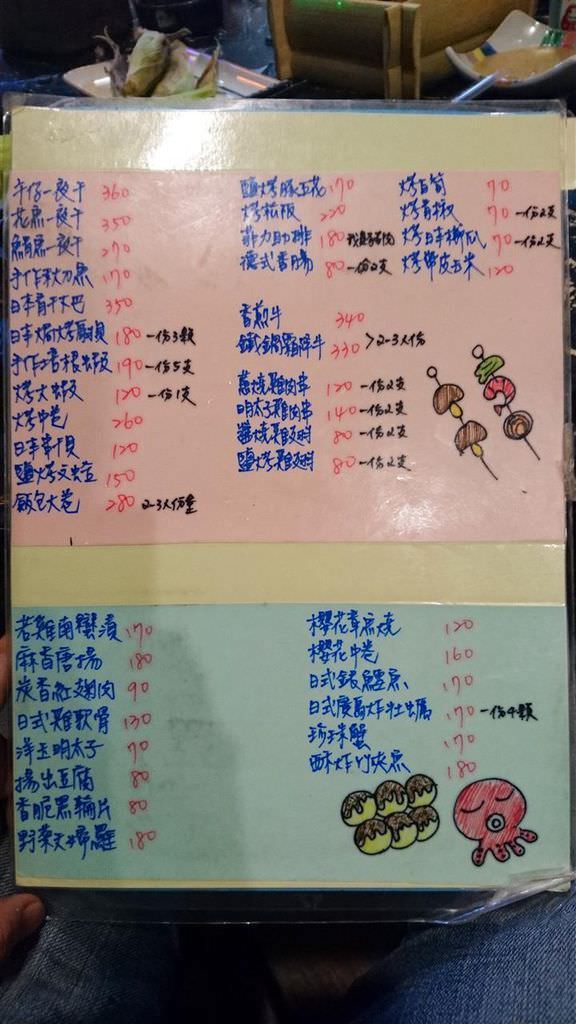 午仔一夜干 360
花魚一夜干 350
魚肖魚一夜干 270
手作秋刀魚 170
日本青干大巴 350
日本焗烤扇貝 180 一份3顆
手作培根虫段 190 一份5支
烤大虫段 120 一份1支
烤中卷 260
日本干貝 120
鹽烤文虫台 150
飯包大卷 280 2-3人份量
鹽烤豚五花 170
烤松板 220
菲力助排 180
德式香腸 80 一份2支
香煎牛 340
鐵鍋霜降牛 330 >2-3人份
蔥燒雞肉串 120 一份2支
明太子雞肉串 140 一份2支
醬燒雞翅 80 一份2支
鹽烤雞翅 80 一份2支
烤白筍 70
烤青椒 70 一份2支
烤日本櫛瓜 70 一份2支
烤帶皮玉米 120
若雞南蠻漬 170
麻香唐揚 180
炭香紅翅肉 90
日式雞軟骨 130
洋玉明太子 70
揚出豆腐 80
香脆黑輪片 80
野菜天婦羅 180
櫻花章魚燒 120
櫻花中卷 160
日式銀鱈魚 170
日式廣島炸牡虫厲 170 一份4顆
珍珠蟹 170
酥炸竹夾魚 180